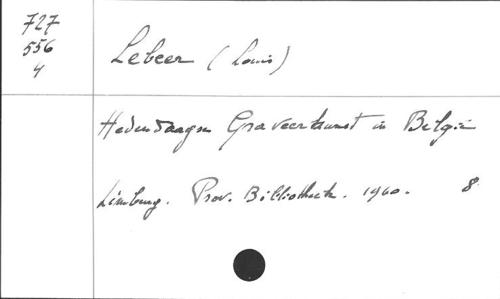 727
556
4
Lebeer (Louis)
Hedendaagse Graveerkunst in België
Limburg. Prov. Bibliotheek. 1960. 8